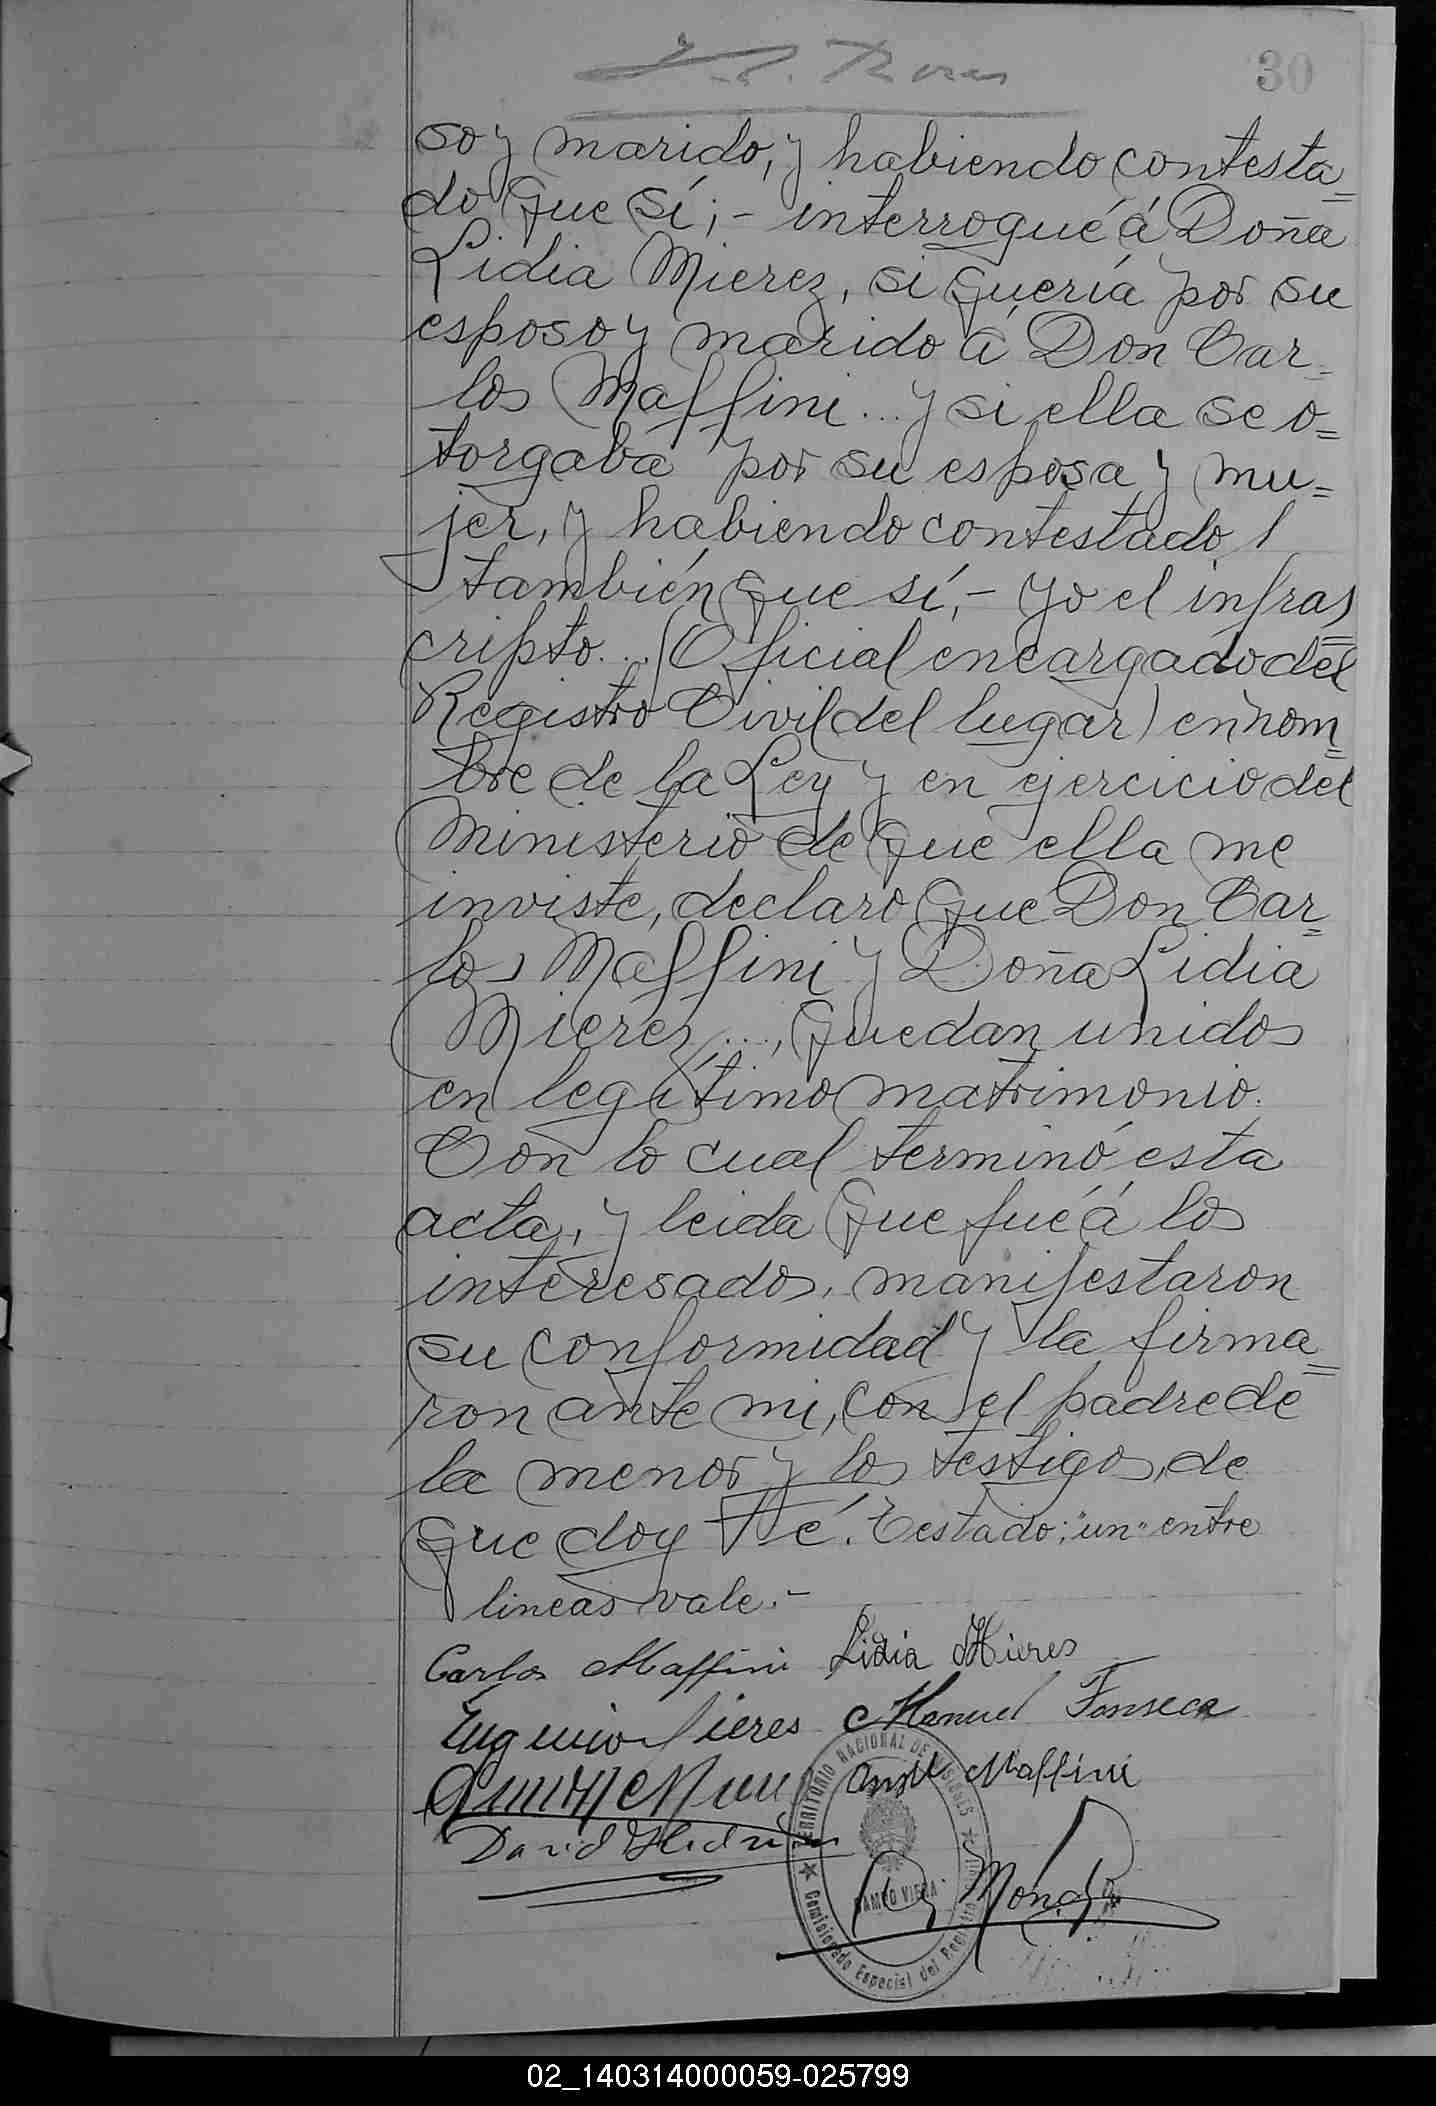 30
so y marido, y habiendo contesta=
do que sí;- interrogué á Doña
Lidia Mierez, si quería por su
esposo y marido á Don Car=
los Maffini... y si ella se o=
torgaba por su esposa y mu=
jer, y habiendo contestado
también que sí,- yo el infras
cripto... (Oficial encargado del
Registro Civil del lugar) en nom=
bre de la Ley y en ejercicio del
Ministerio de que ella me
inviste, declaro que Don Car=
los Maffini y Doña Lidia
Mierez..., quedan unidos
en legítimo matrimonio.
Con lo cual terminó esta
acta, y leida que fué á los
interesados, manifestaron
su conformidad y la firma=
ron ante mi, con el padre de
la menor y los testigos, de
que doy Fé. Testado: "un" entre
lineas vale.-
Carlos Maffini Lidia Mieres
Eugenio Mieres Manuel Fonseca
Angel Maffini
David
TERRITORIO NACIONAL DE MISIONES
CAMPO VIERA
Comisionado Especial del Registro Civil
02_140314000059-025799